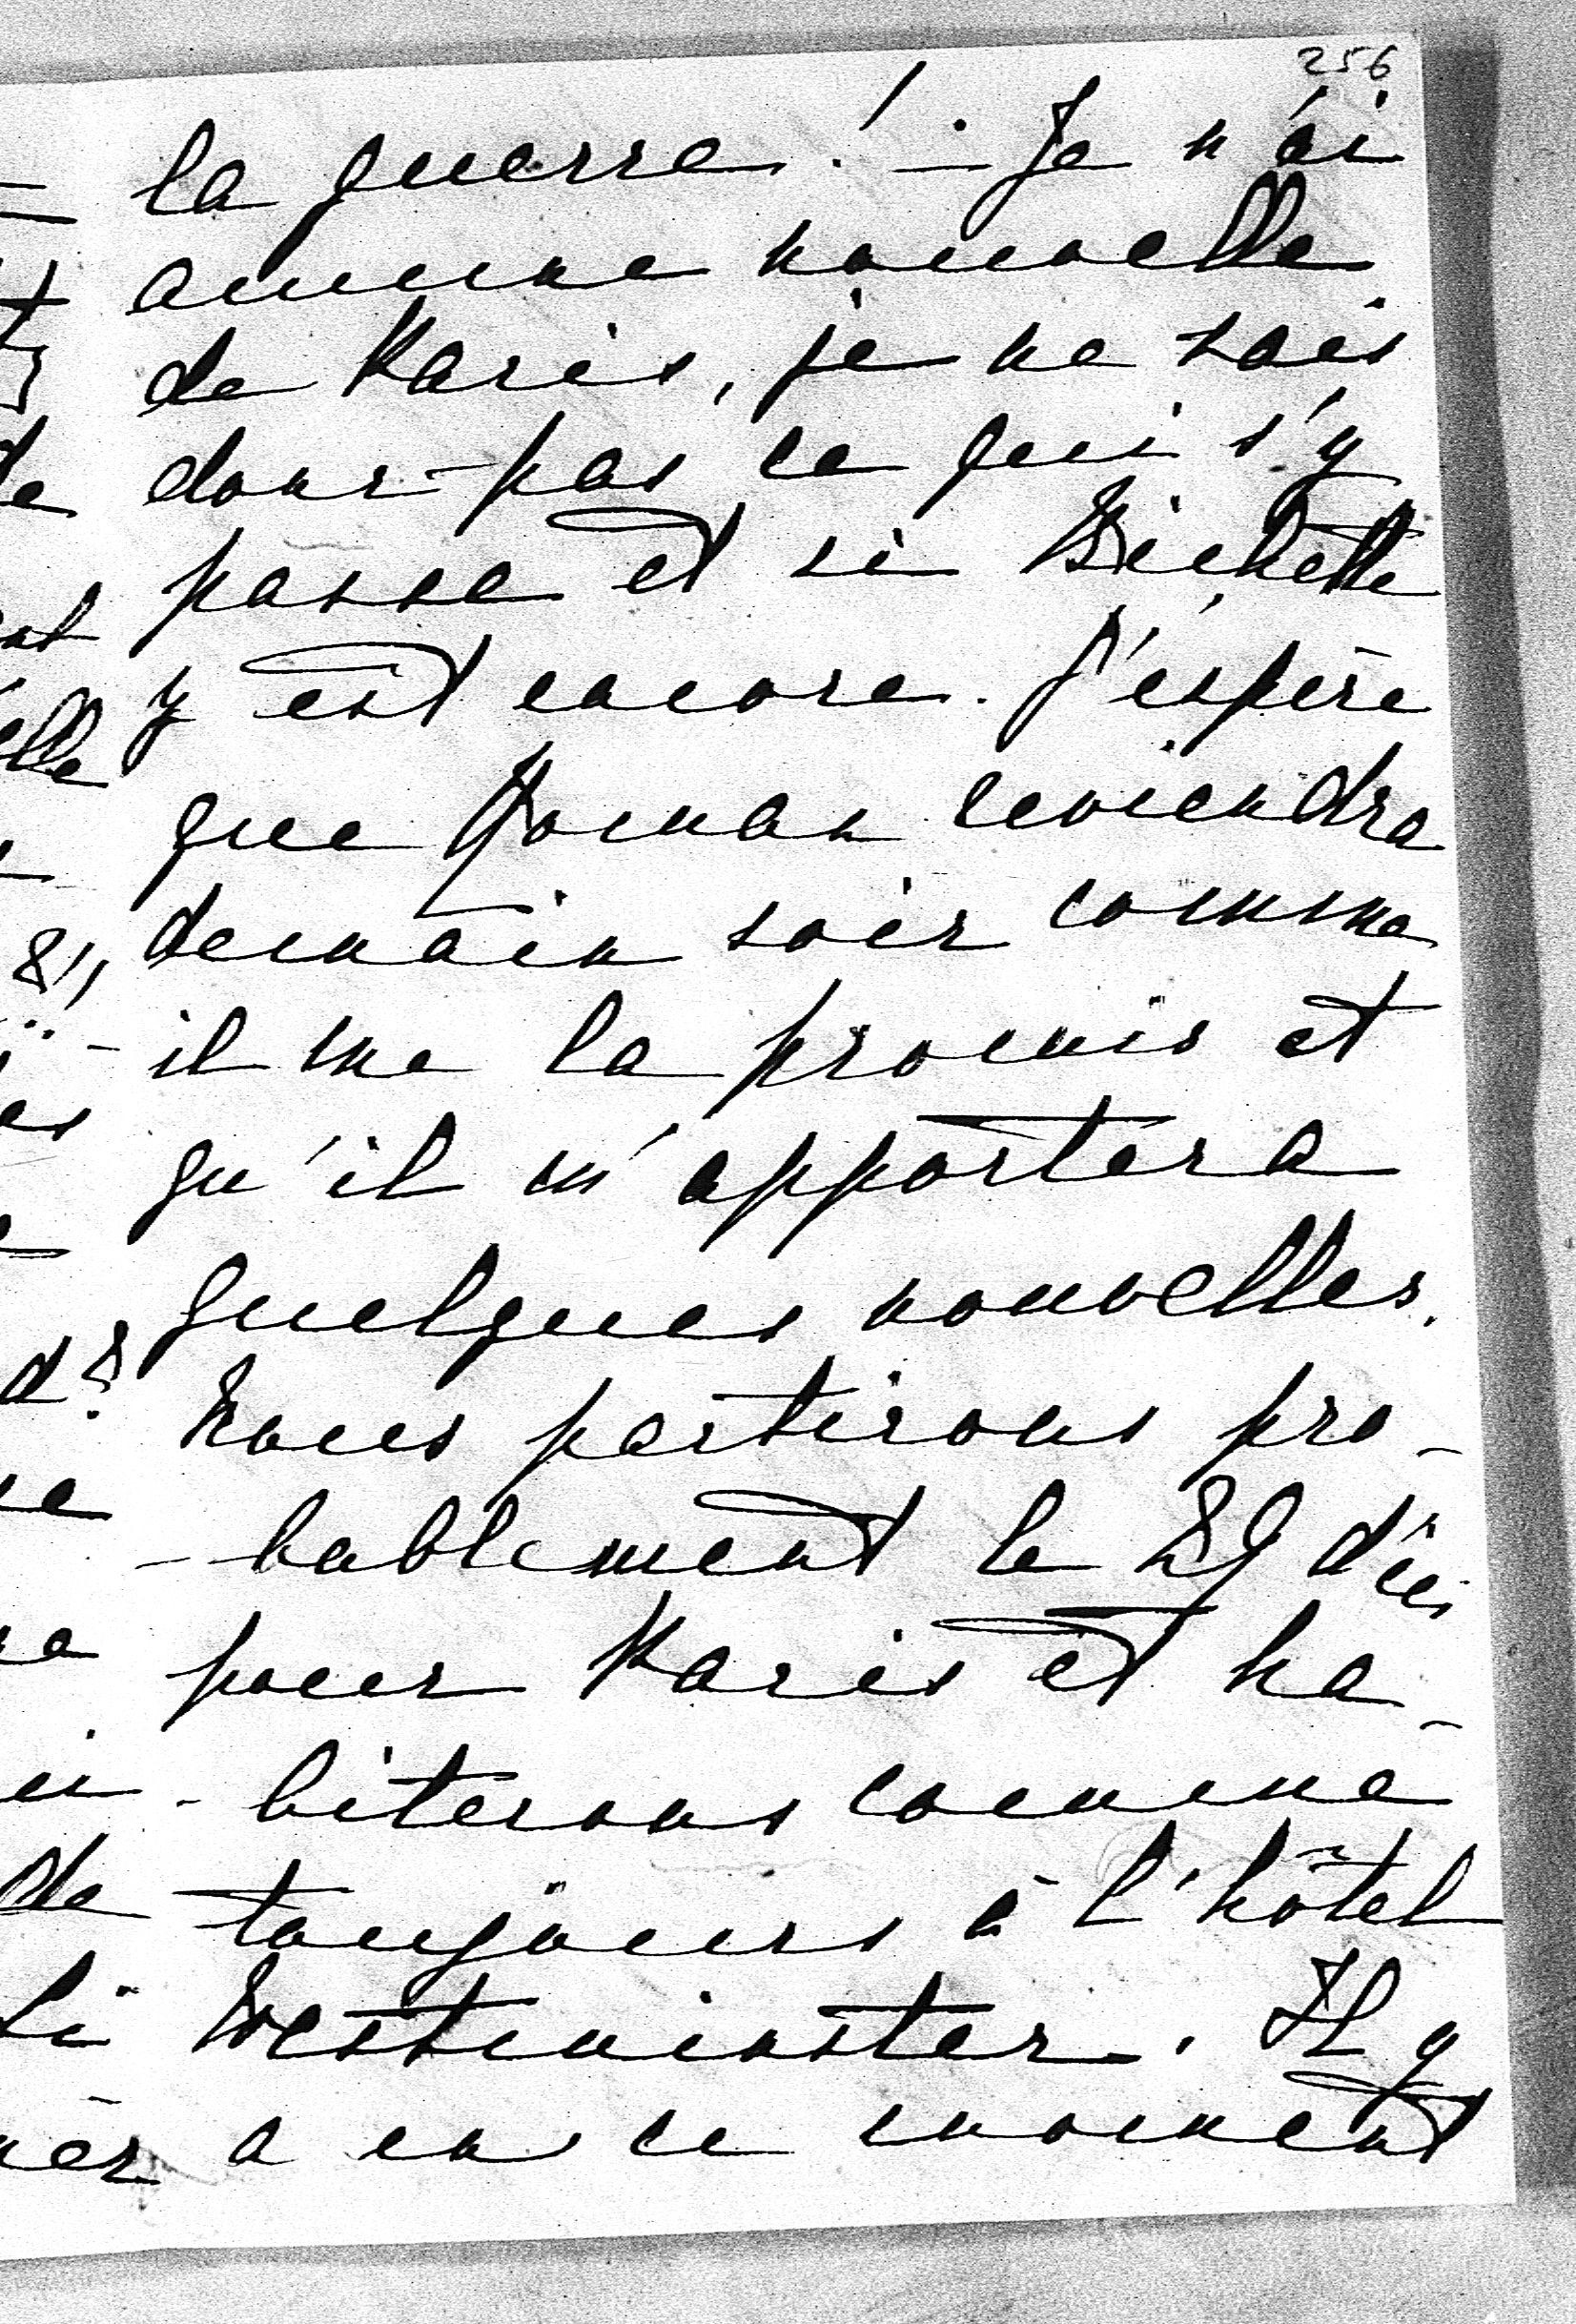 256
la guerre! - Je n'ai
aucune nouvelle
de Paris, je ne sais
donc pas ce qui s'y
passe et si Bichette
y est encore. J'espère
que Roman reviendra
demain soir comme
il me la promis et
qu'il m'apportera
quelques nouvelles.
Nous partirons pro-
-bablement le 29 d'ici
pour Paris et ha-
-biterons comme
toujours à l'hôtel
Westminster. Il y
a en ce moment